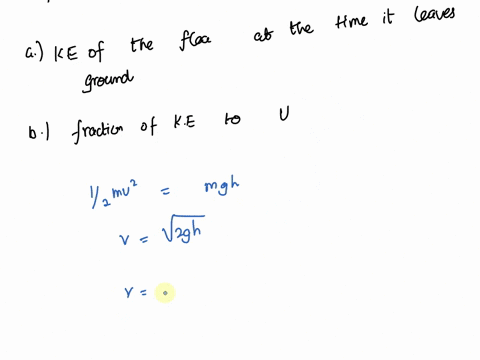 a.) KE of the flea at the time it leaves
ground
b.) fraction of K.E to U
1/2 mv² = mgh
v = √2gh
v =